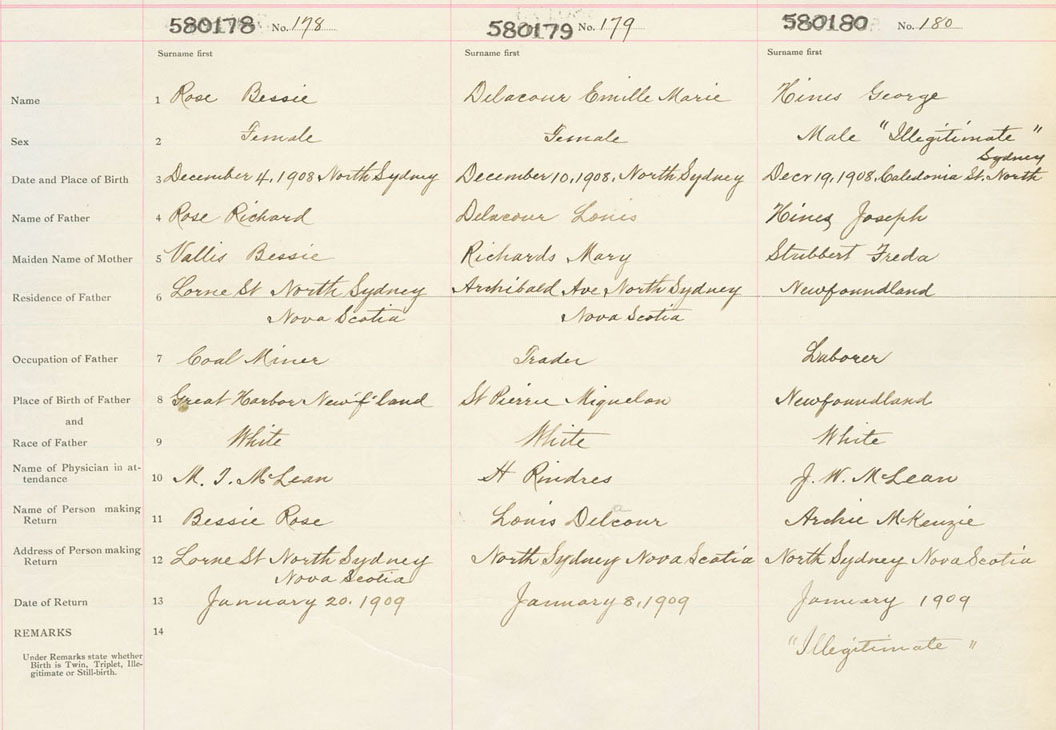 580178 No. 178 580179 No. 179 580180 No. 180
Surname first Surname first Surname first
Name 1 Rose Bessie Delacour Emille Marie Hines George
Sex 2 Female Female Male "Illegitimate"
Sydney
Date and Place of Birth 3 December 4, 1908 North Sydney December 10, 1908, North Sydney Decr 19, 1908, Caledonia St. North
Name of Father 4 Rose Richard Delacour Louis Hines Joseph
Maiden Name of Mother 5 Vallis Bessie Richards Mary Stubbert Freda
Residence of Father 6 Lorne St North Sydney Archibald Ave North Sydney Newfoundland
Nova Scotia Nova Scotia
Occupation of Father 7 Coal Miner Trader Laborer
Place of Birth of Father 8 Great Harbor New'f'land St Pierrie Miquelon Newfoundland
and
Race of Father 9 White White White
Name of Physician in at-
tendance 10 M. T. McLean H Rindres J. W. McLean
Name of Person making
Return 11 Bessie Rose Louis Delcour Archie McKenzie
Address of Person making
Return 12 Lorne St North Sydney North Sydney Nova Scotia North Sydney Nova Scotia
Nova Scotia
Date of Return 13 January 20, 1909 January 8, 1909 January 1909
REMARKS 14
"Illegitimate"
Under Remarks state whether
Birth is Twin, Triplet, Ille-
gitimate or Still-birth.